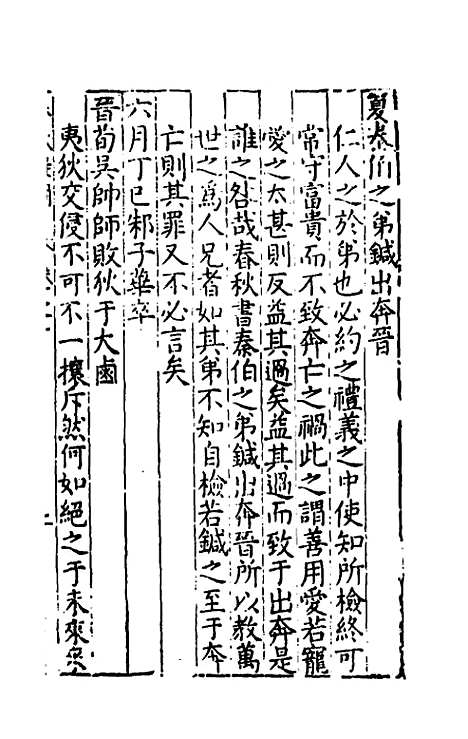 夏秦伯之弟鍼出奔晉
仁人之於弟也必約之禮義之中使知所檢終可
常守富貴而不致奔亡之禍此之謂善用愛若寵
愛之太甚則反益其過矣益其過而致于出奔是
誰之咎哉春秋書秦伯之弟鍼出奔晉所以教萬
世之爲人兄者如其弟不知自檢若鍼之至于奔
亡則其罪又不必言矣
六月丁巳邾子華卒
晉荀吳帥師敗狄于大鹵
夷狄交侵不可不一攘斥然何如絕之于未來